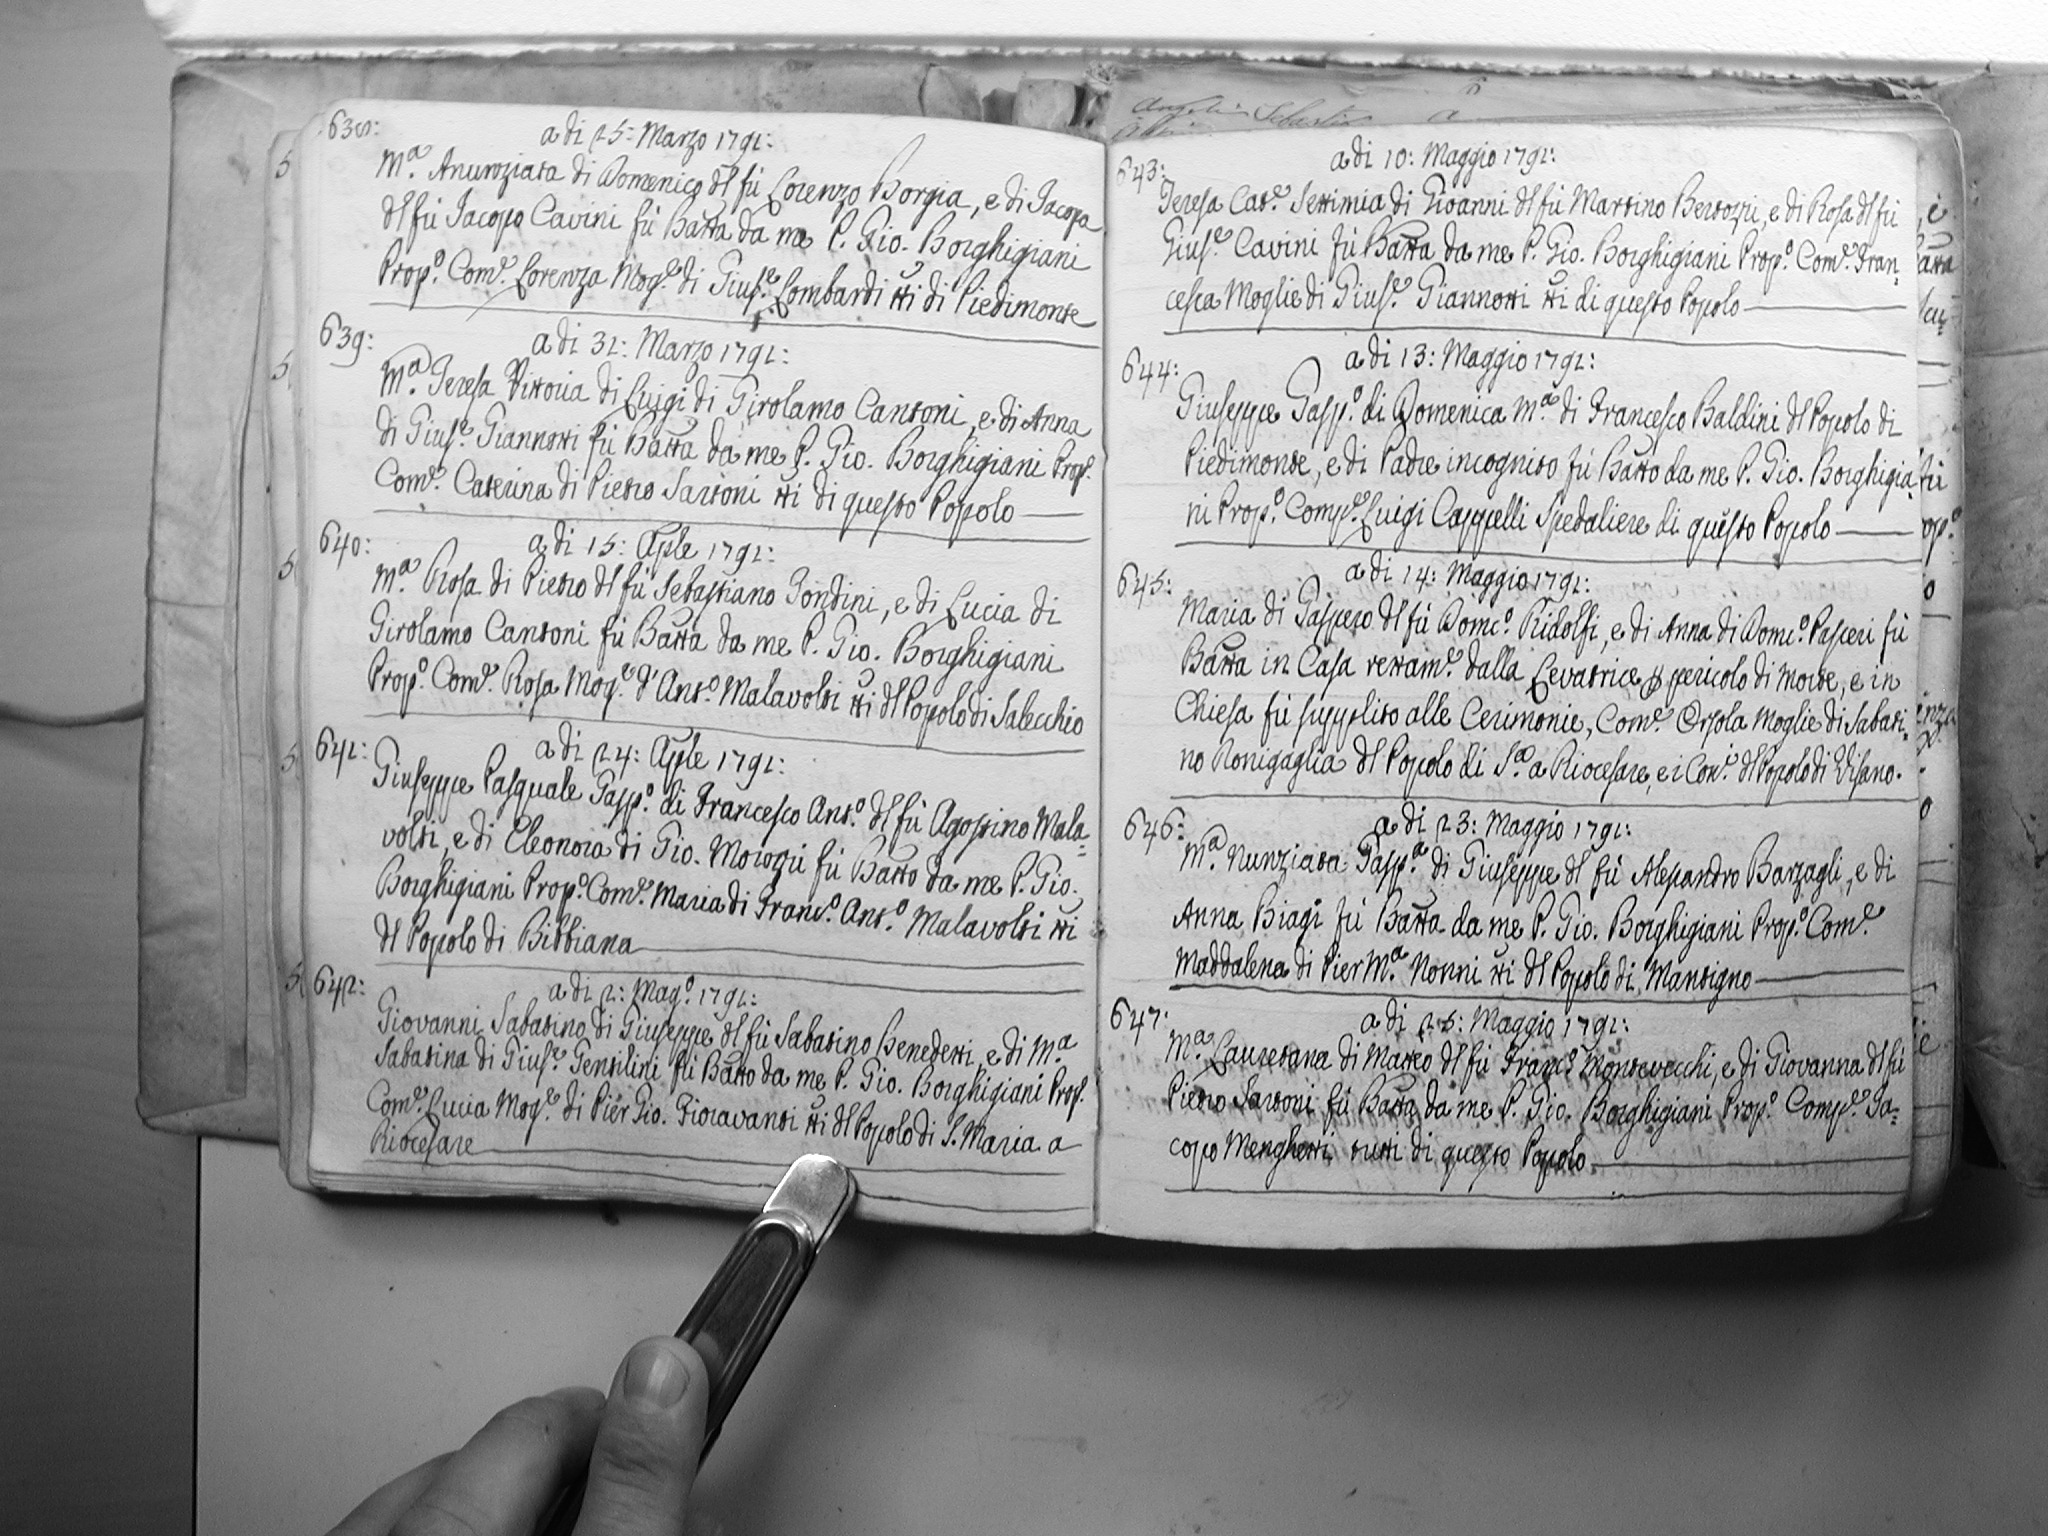 638:
a di 25: Marzo 1791:
Mª. Anunziata di Domenico dl fù Lorenzo Borgia, e di Jacopa
dl fù Jacopo Cavini fù Batta da me P. Gio. Borghigiani
Propº. Comᵉ. Lorenza Mogᵉ. di Giusᵉ. Lombardi tti di Piedimonte
639:
a di 31: Marzo 1791:
Mª. Teresa Vittoria di Luigi di Girolamo Cantoni, e di Anna
di Giusᵉ. Giannotti fù Batta da me P. Gio. Borghigiani Propº.
Comᵉ. Caterina di Pietro Sartoni tti di questo Popolo
640:
a di 15: Aple 1791:
Mª. Rosa di Pietro dl fù Sebastiano Tondini, e di Lucia di
Girolamo Cantoni fù Batta da me P. Gio. Borghigiani
Propº. Comᵉ. Rosa Mogᵉ. d'Antº. Malavolti tti dl Popolo di Salecchio
641:
a di 24: Aple 1791:
Giuseppe Pasquale Gaspº. di Francesco Antº. dl fù Agostino Mala=
volti, e di Eleonora di Gio. Morozzi fù Batto da me P. Gio.
Borghigiani Propº. Comᵉ. Maria di Francº. Antº. Malavolti tti
dl Popolo di Bibbiana
642:
a di 2: Magº. 1791:
Giovanni Sabatino di Giuseppe dl fù Sabatino Benedetti, e di Mª.
Sabatina di Giusᵉ. Gentilini fù Batto da me P. Gio. Borghigiani Propº.
Comᵉ. Lucia Mogᵉ. di Pier Gio. Fioravanti tti dl Popolo di S. Maria a
Riocesare
643:
a di 10: Maggio 1791:
Teresa Catª. Settimia di Gioanni dl fù Martino Bertozzi, e di Rosa dl fù
Giusᵉ. Cavini fù Batta da me P. Gio. Borghigiani Propº. Comᵉ. Fran=
cesca Moglie di Giusᵉ. Giannotti tti di questo Popolo
644:
a di 13: Maggio 1791:
Giuseppe Gaspº. di Domenica Mª. di Francesco Baldini dl Popolo di
Piedimonte, e di Padre incognito fù Batto da me P. Gio. Borghigia=
ni Propº. Compᵉ. Luigi Cappelli Spedaliere di questo Popolo
645:
a di 14: Maggio 1791:
Maria di Gaspero dl fù Domcº. Ridolfi, e di Anna di Domcº. Pasceri fù
Batta in Casa rettamᵉ. dalla Levatrice p pericolo di morte, e in
Chiesa fù supplito alle Cerimonie, Comᵉ. Orsola Moglie di Sabati=
no Ronigaglia dl Popolo di Sª. a Riocesare, e i Conⁱ. dl Popolo di Visano.
646:
a di 23: Maggio 1791:
Mª. Nunziata Gaspª. di Giuseppe dl fù Alessandro Barzagli, e di
Anna Biagi fù Batta da me P. Gio. Borghigiani Propº. Comᵉ.
Maddalena di Pier Mª. Nonni tti dl Popolo di Mantigno
647:
a di 25: Maggio 1791:
Mª. Lauretana di Matteo dl fù Francº. Montevecchi, e di Giovanna dl fù
Pietro Sartoni fù Batta da me P. Gio. Borghigiani Propº. Compᵉ. Ja=
copo Menghetti tutti di questo Popolo